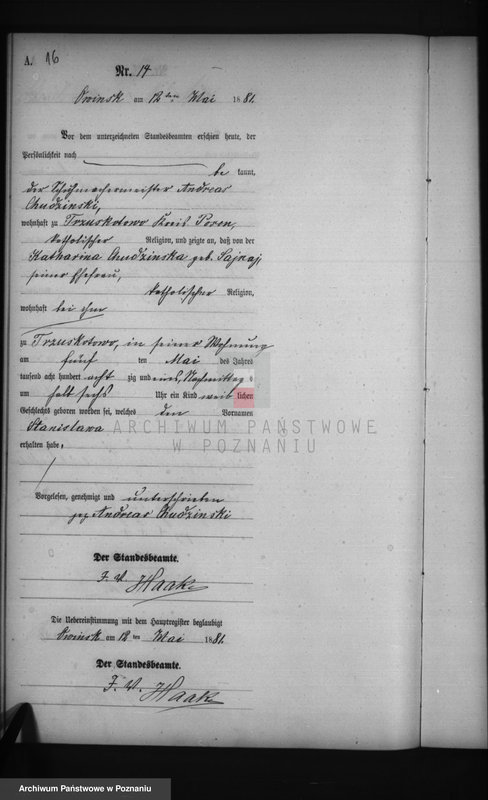 A. 16
Nr. 14
Owinsk am 12 ten Mai 1881.
Vor dem unterzeichneten Standesbeamten erschien heute, der
Persönlichkeit nach
be kannt,
der Schuhmachermeister Andreas
Chudzinski,
wohnhaft zu Trzuskotowo Kreis Posen,
katholischer Religion, und zeigte an, daß von der
Katharina Chudzinska geb.
seiner Ehefrau,
katholischer Religion,
wohnhaft bei ihm
zu Trzuskotowo, in seiner Wohnung
am fünf ten Mai des Jahres
tausend acht hundert acht zig und eins, Nachmittag s
um halb sechs Uhr ein Kind weib lichen
Geschlechts geboren worden sei, welches den Vornamen
Stanislawa
erhalten habe.
Vorgelesen, genehmigt und unterschrieben
gez Andreas Chudzinski
Der Standesbeamte.
I. V. Haake
Die Uebereinstimmung mit dem Hauptregister beglaubigt
Owinsk am 12 ten Mai 1881.
Der Standesbeamte.
I. V. Haake
ARCHIWUM PAŃSTWOWE
W POZNANIU
Archiwum Państwowe w Poznaniu